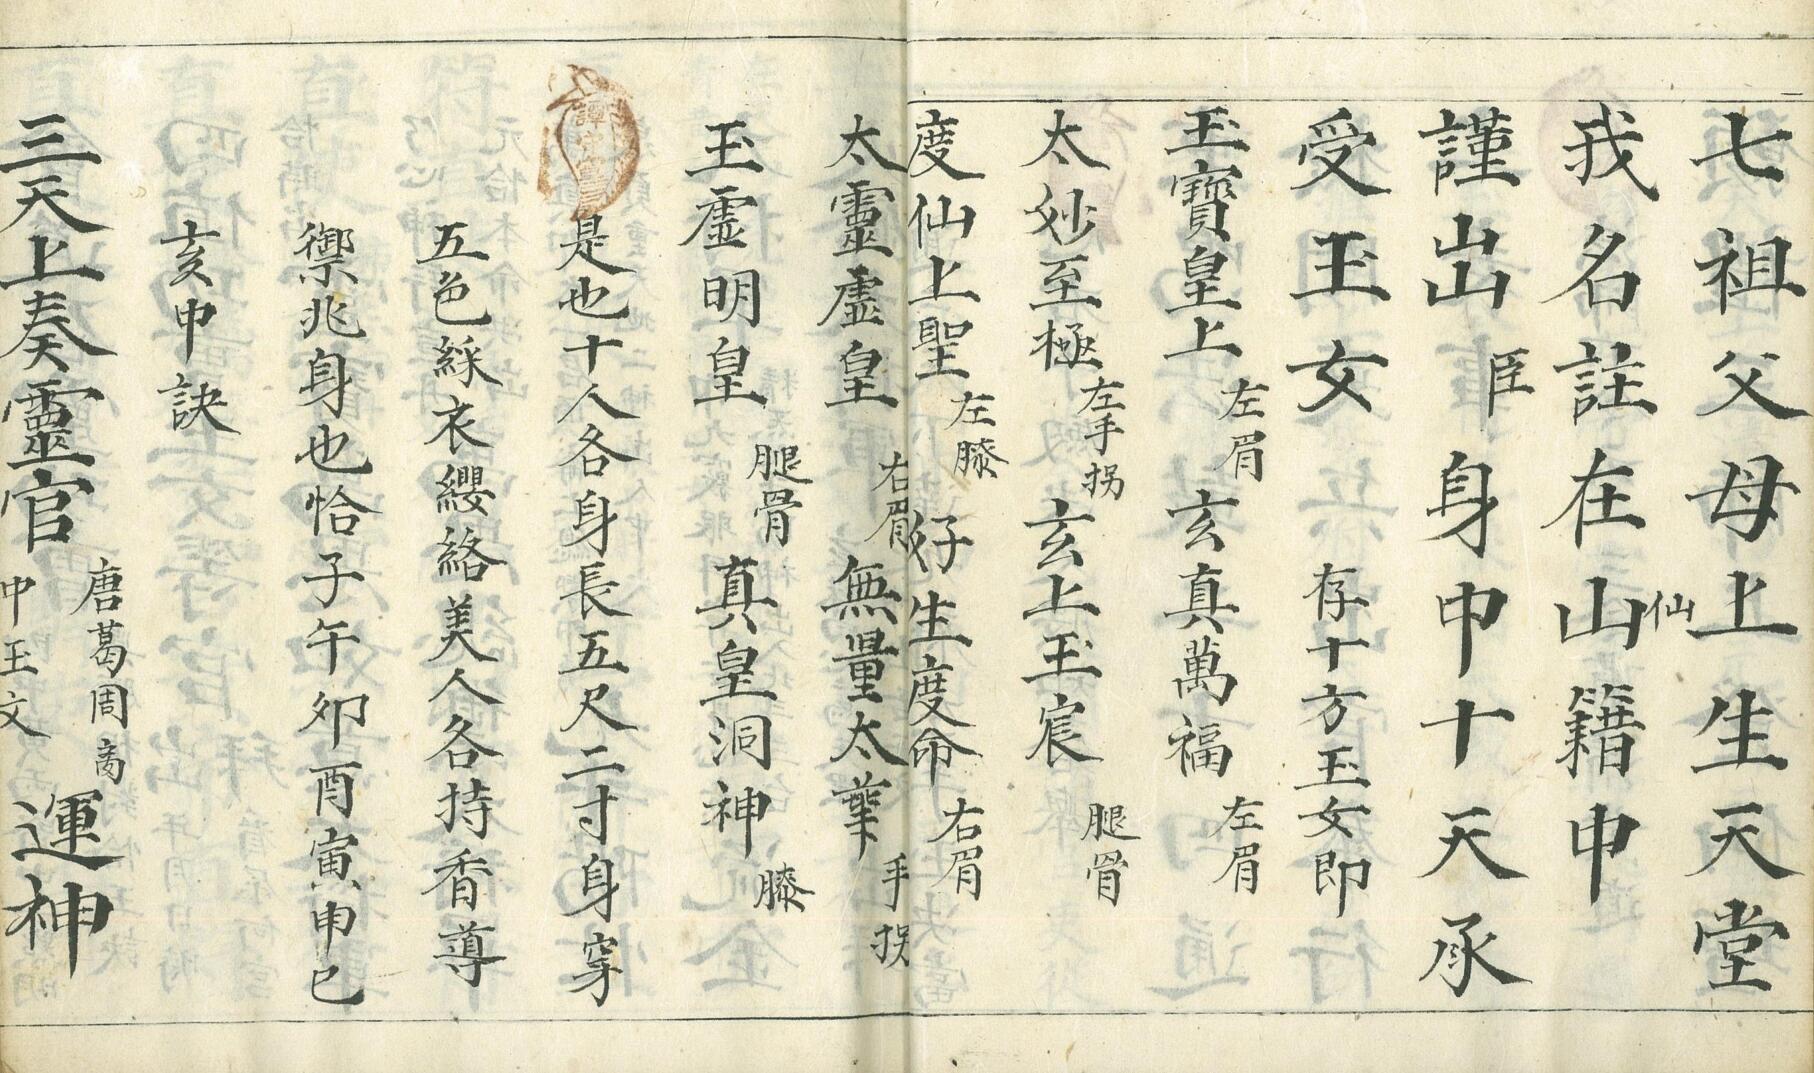 七祖父母上生天堂
我名註在仙山籍中
謹出臣身中十天承
受玉女存十方玉女即
玉寳皇上左眉玄真萬福左眉
太妙至極左手拐玄上玉宸腿骨
度仙上聖左膝好生度命右眉
太靈虛皇右眉無量太華手拐
玉虛明皇腿骨真皇洞神膝
是也十人各身長五尺二寸身穿
五色綵衣纓絡美人各持香導
禦兆身也恰子午卯酉寅申巳
亥中訣
三天上奏靈官唐葛周啇運神
中玉文